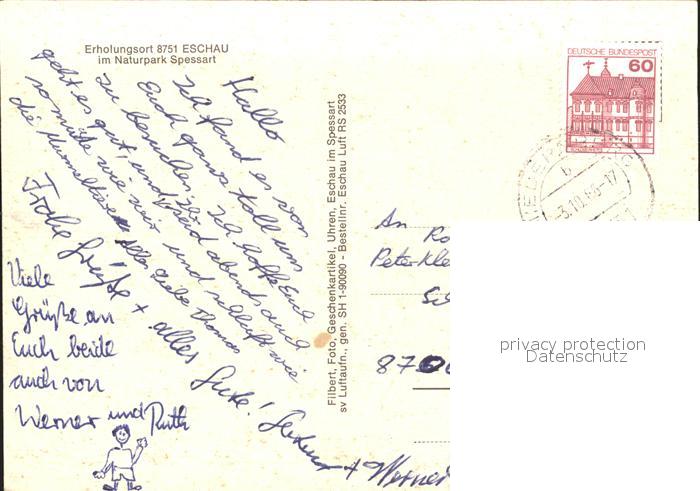 Erholungsort 8751 ESCHAU
im Naturpark Spessart
Hallo
Ich fand es von
Euch ganz toll uns
zu besuchen. Ich hoffe Euch
geht es gut, und seid abends auch
so müde wie wir und schlaft wie
die Murmeltiere. Alles Liebe Thomas
Frohe Grüße + alles Gute!
+ Werner
Viele
Grüße an
Euch beide
auch von
Werner und Ruth
Filbert, Foto - Geschenkartikel, Uhren, Eschau im Spessart
sv Luftaufn., gen. SH 1-90090 - Bestellnr. Eschau Luft RS 2533
DEUTSCHE BUNDESPOST
60
b
-3.10.
-17
An
Peter-Kle
870
privacy protection
Datenschutz